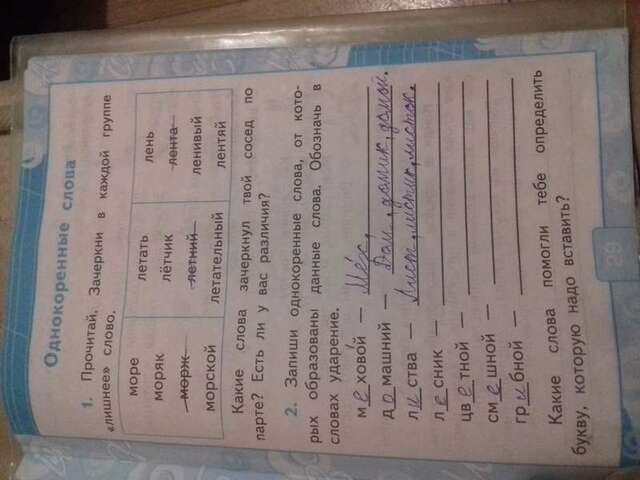 Однокоренные слова
1. Прочитай. Зачеркни в каждой группе
«лишнее» слово.
море летать лень
моряк лётчик лента
морж летний ленивый
морской летательный лентяй
Какие слова зачеркнул твой сосед по
парте? Есть ли у вас различия?
2. Запиши однокоренные слова, от кото-
рых образованы данные слова. Обозначь в
словах ударение.
меховой — Мех,
домашний — Дом, домик, домой.
листва — Лист, листик, листок.
лесник —
цветной —
смешной —
грибной —
Какие слова помогли тебе определить
букву, которую надо вставить?
39